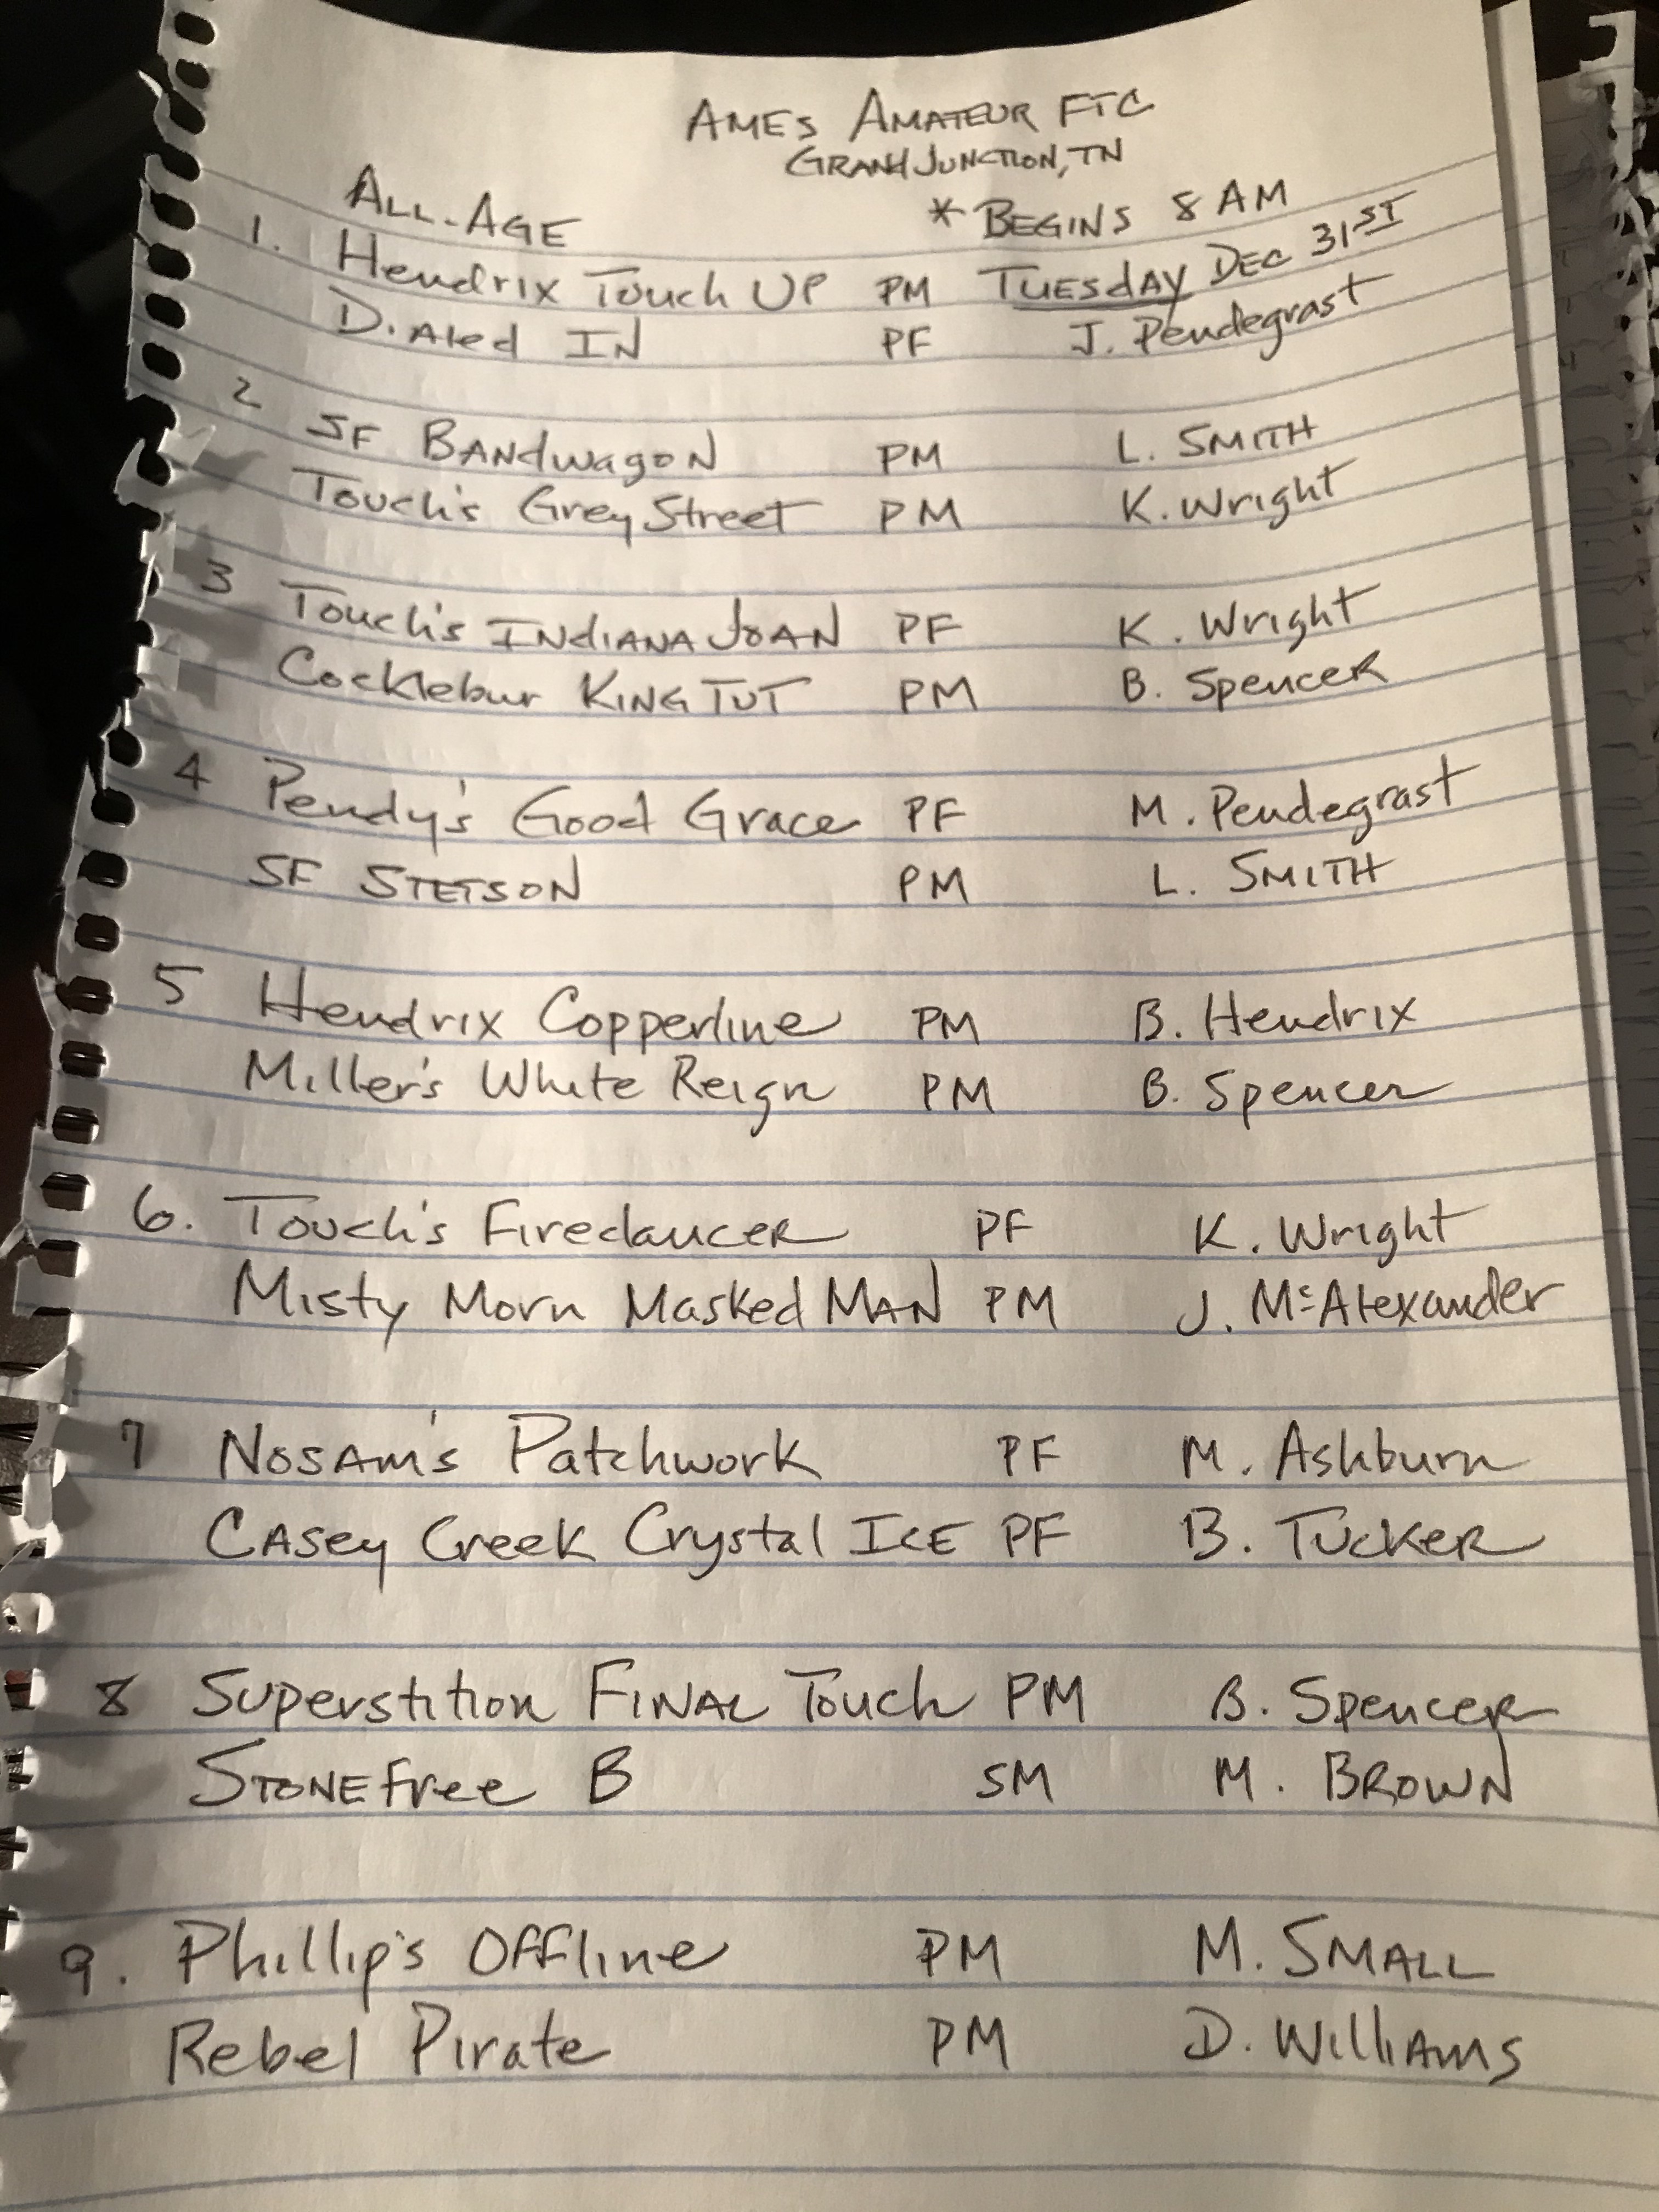 AMES AMATEUR FTC
GRAND JUNCTION, TN
ALL-AGE * BEGINS 8 AM
1. Hendrix Touch UP PM TUESDAY DEC 31ST
Dialed IN PF J. Pendegrast
2 SF BANdwagoN PM L. SMITH
Touch's Grey Street PM K. Wright
3 Touch's INdIANA JOAN PF K. Wright
Cocklebur KING TUT PM B. SpencER
4 Pendy's Good Grace PF M. Pendegrast
SF STETSON PM L. SMITH
5 Hendrix Copperline PM B. Hendrix
Miller's White Reign PM B. Spencer
6. Touch's FiredancER PF K. Wright
Misty Morn Masked MAN PM J. McAlexander
7 NOSAM's Patchwork PF M. Ashburn
CASey Creek Crystal ICE PF B. TUCKER
8 Superstition FINAL Touch PM B. SpencER
STONEfree B SM M. BROWN
9. Phillip's Offline PM M. SMALL
Rebel Pirate PM D. WilliAMS